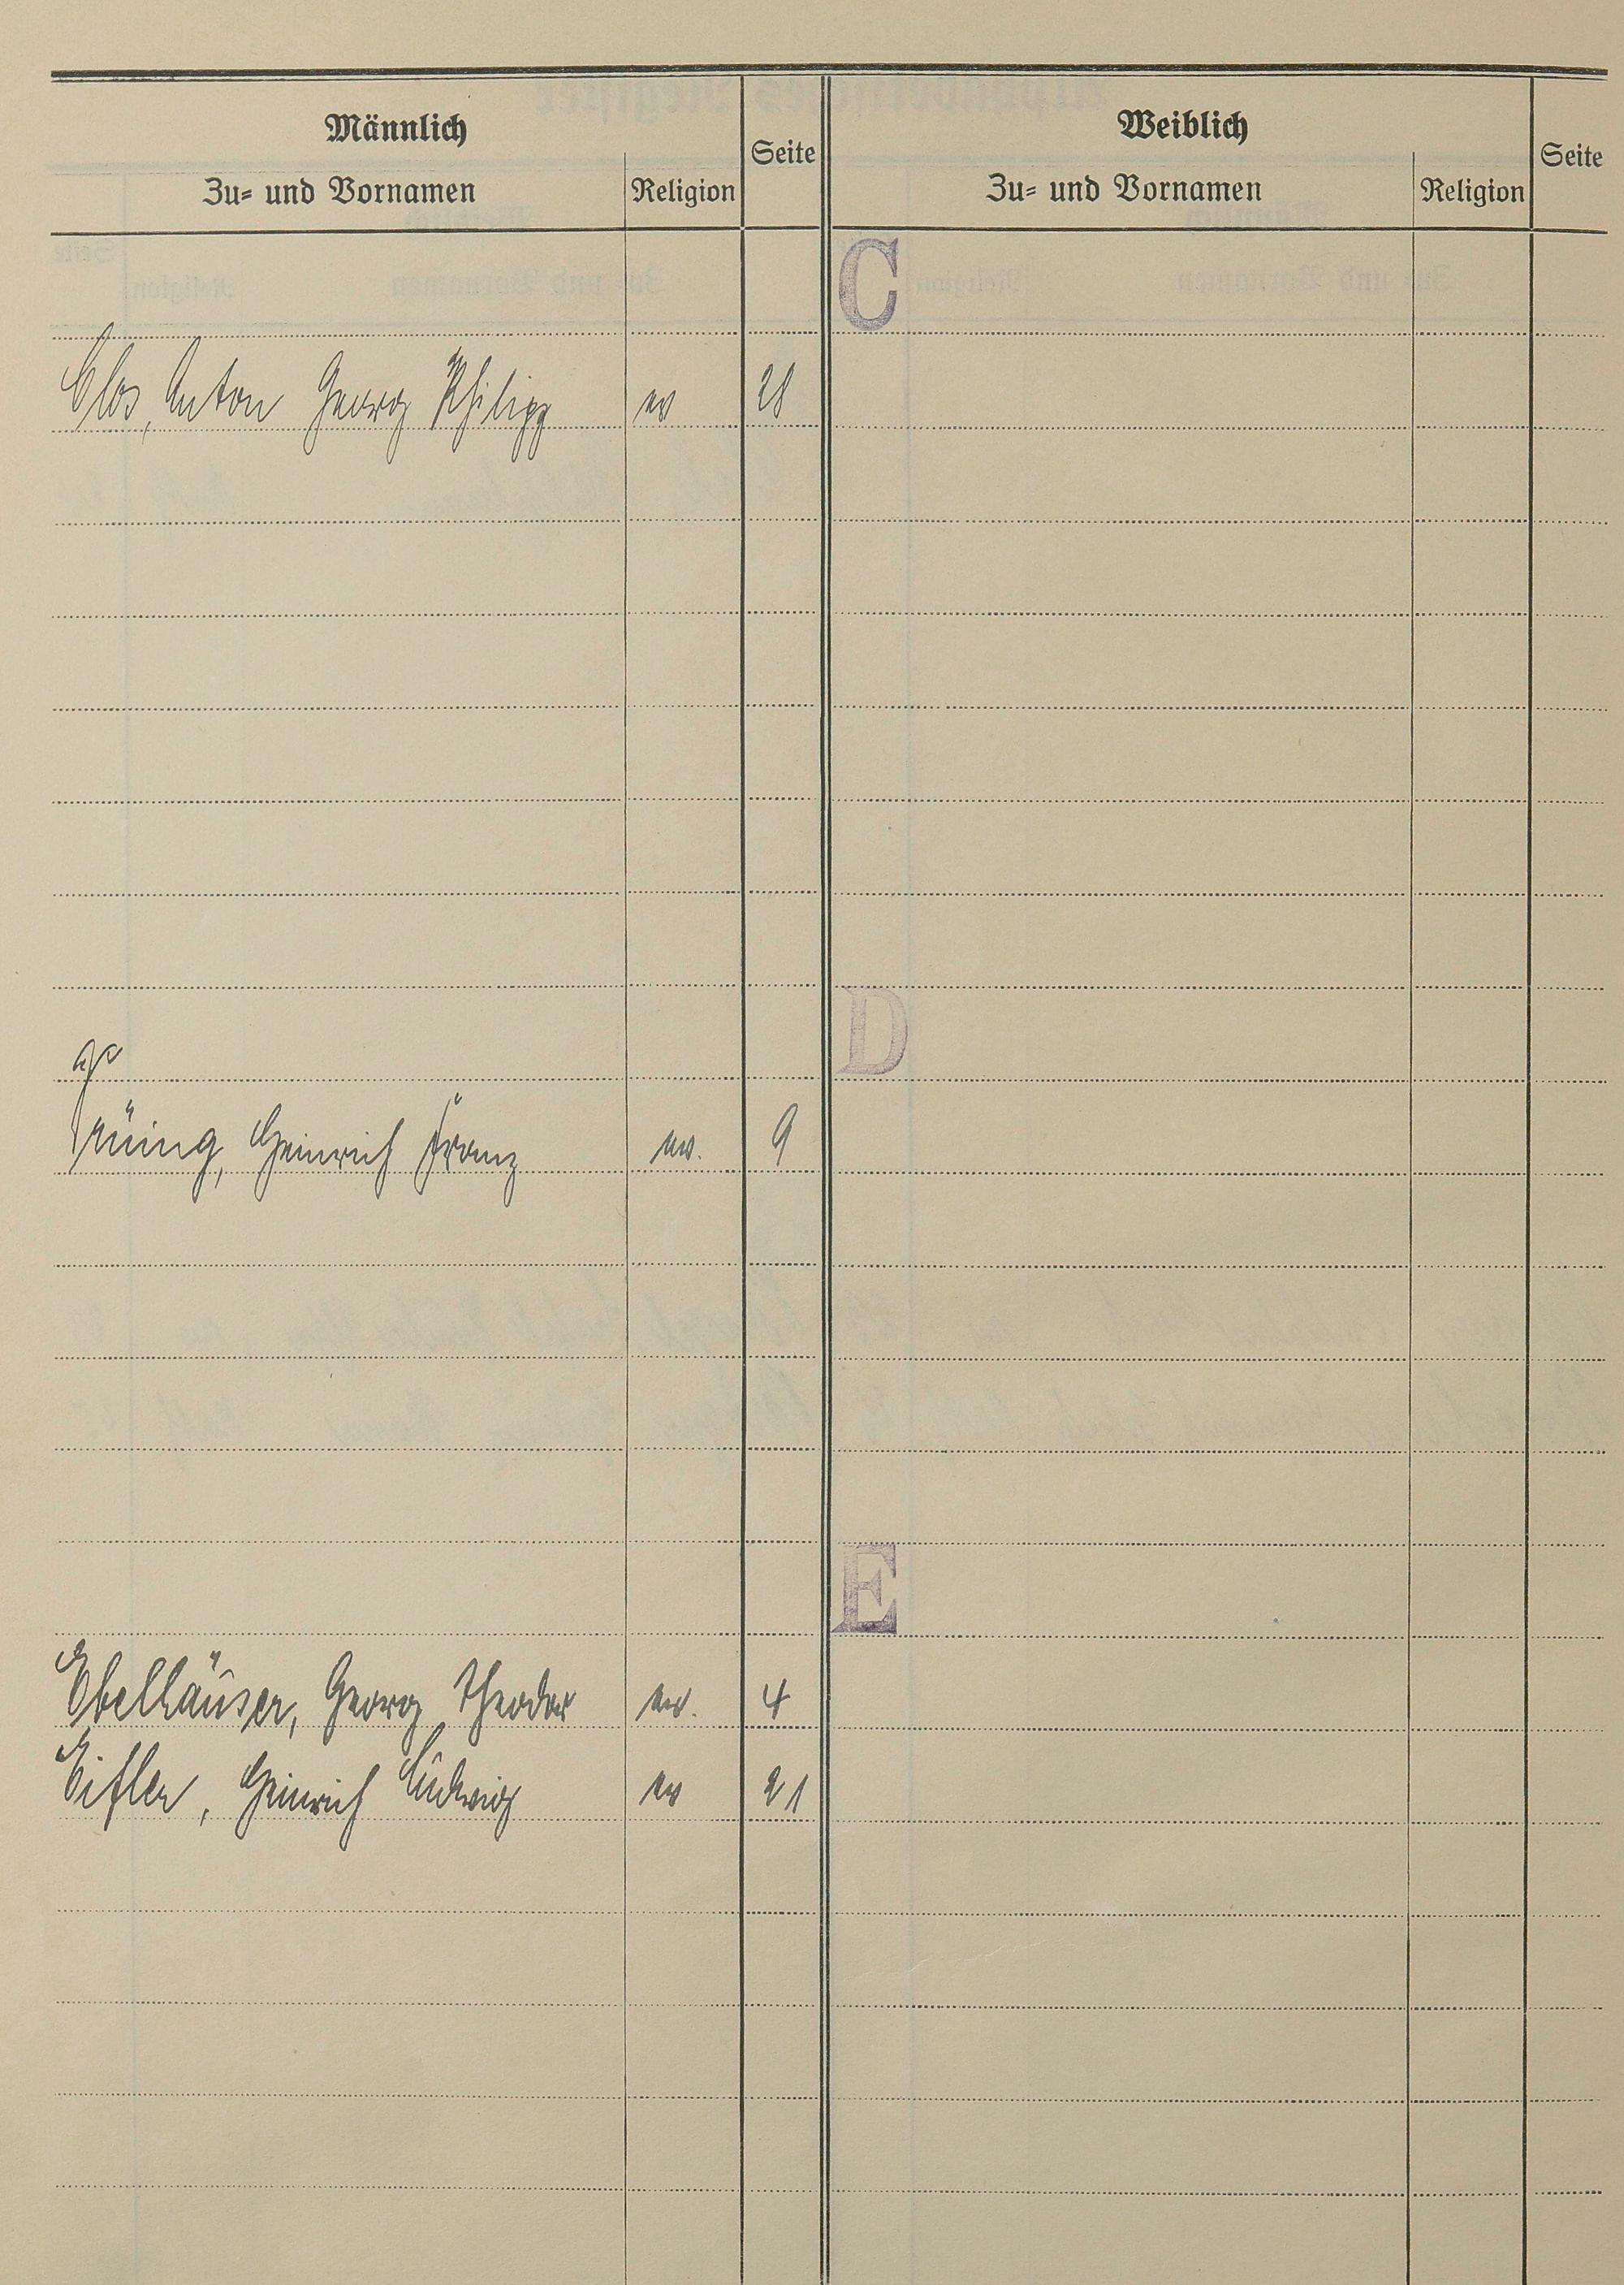 Männlich
Zu- und Vornamen
Religion
Seite
Weiblich
Zu- und Vornamen
Religion
Seite
C
Clos, Anton Georg Philipp ev 28
D
Heinrich Franz ev. 9
E
Ebelhäuser, Georg Theodor ev. 4
Eifler, Heinrich Ludwig ev 21